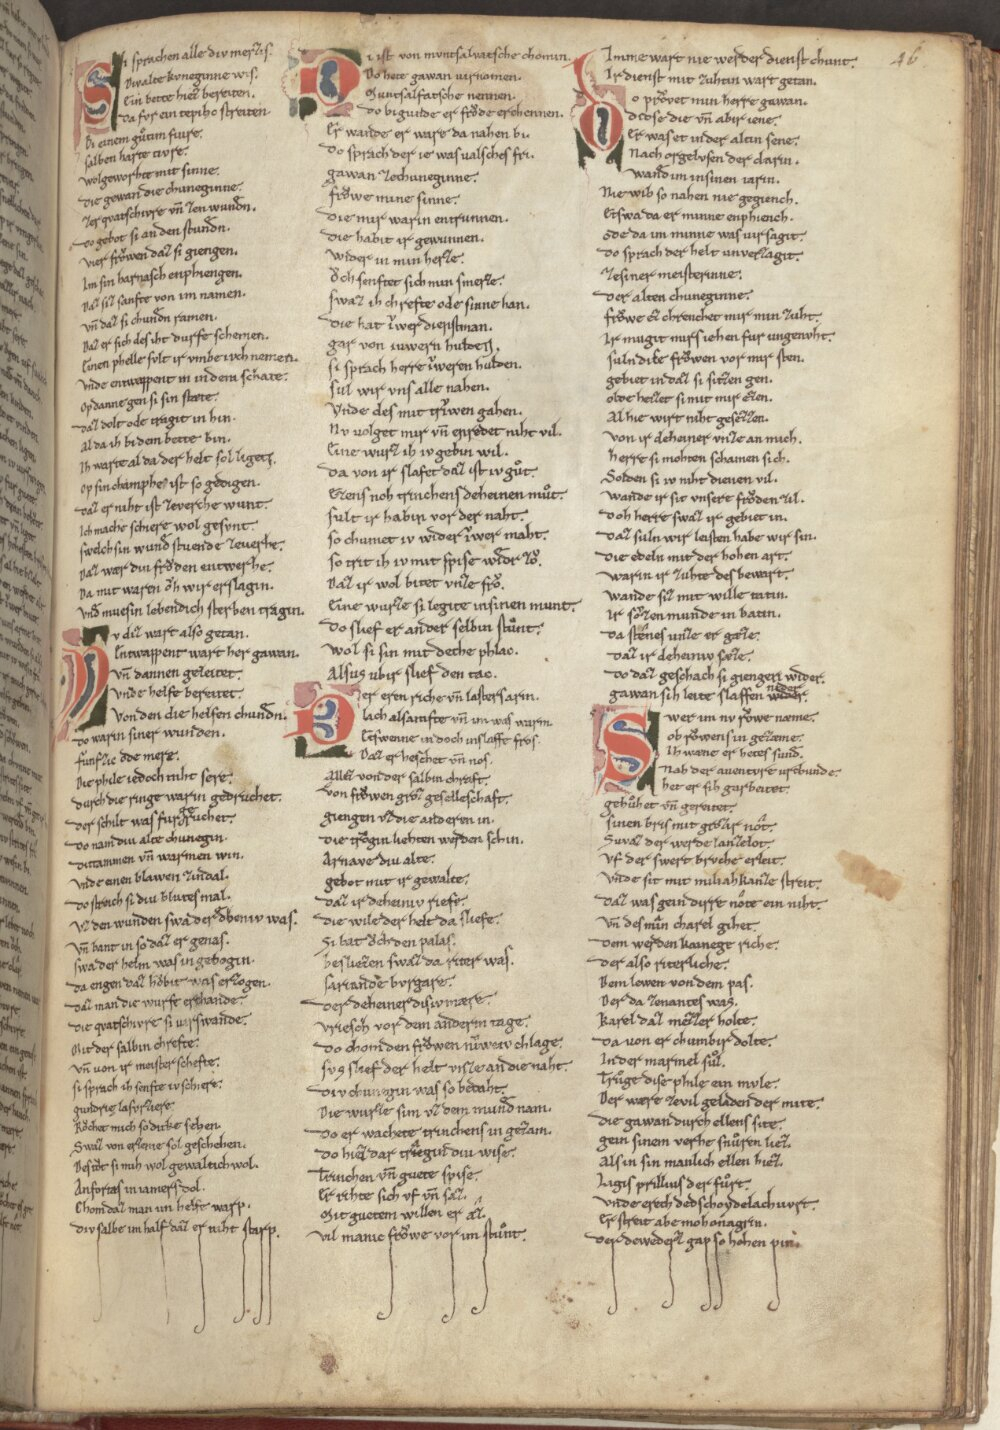 Si sprachen alle div mer is.
Div alte kvneginne wis.
Ein bette hiez bereiten.
Da fvr ein tepiho streiten
Bi einem gůtim fiure.
salben harte tivre.
wol geworhte mit sinne.
die gewan die chuneginne.
zer qvatschivre vn̄ zen wundn̄.
Do gebot si an den stundn̄.
vier frŏwen daz si giengen.
Im sin harnasch enphiengen.
Daz siz sanfte von im namen.
vn̄ daz si chundn̄ ramen.
Daz er sich des iht durfe schemen.
Einen phelle svlt ir vmbe ivch nemen.
Vnde entwappent in in dem schate.
Op danne gen si sin state.
Daz dolt ode tragit in hin.
Al da ih bi dem bette bin.
Ih warte al da der helt sol ligen.
Op sin champhez ist so gedigen.
Daz er niht ist ze verhe wunt.
Ich mache schiere wol gesvnt.
Swelch sin wund̄ stuende ze verhe.
Daz wær div frŏden entwerhe.
Da mit waren ŏh wir erslagin.
Vnd̄ muesin lebendich sterben tragin.
Nv diz wart also getan.
Entwappent wart her gawan.
Vn̄ dannen geleitet.
Vnde helfe bereitet.
Von den die helfen chundn̄.
Do warin siner wunden.
fvnfzic ode mere.
Die phile iedoch niht sere.
durch die ringe warin gedruchet.
Der schilt was fur geruchet.
Do nam div alte chunegin.
dictammen vn̄ warmen win.
Vnde einen blawen zindal.
Do streich si div blutes mal.
Vz den wunden swa der dheniv was.
Vn̄ bant in so daz er genas.
Swa der helm was in gebogin.
Da engen daz hŏbit was erzogen.
Daz man die wurfe erchande.
Die qvatschivre si virswande.
Mit der salbin chrefte.
Vn̄ von ir meisterschefte.
Si sprach ih senfte iv schiere.
Gundrie lasvrziere.
Rŏchet mich so diche sehen.
Swaz von erzenie sol geschehen.
Des tŏt si mih wol gewaltich wol.
Anfortas in iamers dol.
Chom daz man im helfe warp.
Div salbe im half daz er niht starp.
Di ist von mvntsalvatsche chomin.
Do hete gawan virnomen.
Muntsalfatsche nennen.
Do biguide er frŏde erchennen.
Er wande er ware da nahen bi.
Do sprach der ie was valsches fri.
Gawan ze chuneginne.
frŏwe mine sinne.
Die mir warin entrunnen.
Die habit ir gewunnen.
Wider in min herze.
Ŏch senftet sich min smerze.
Swaz ih chrefte ode sinne han.
Die hat iwer dienstman.
Gar von iuwern hulden.
Si sprach herre iweren hulden.
Sul wir vns alle nahen.
Vnde des mit trîwen gahen.
Nv volget mir vn̄ enredet niht vil.
Eine wurz ih iv gebin wil.
Da von ir slafet daz ist iv gůt.
Ezens noh trinchens deheinen mŭt.
Sult ir habin vor der naht.
So chumet iv wider iwer maht.
So trit ih iv mit spise wid̄r zŏ.
Daz ir wol bitet vnze frŏ.
Eine wurze si legite in sinen munt.
Do slief er an der selbin stůnt.
Wol si sin mit deche phlac.
Alsus ubir slief den tac.
Der eren riche vn̄ laster s arm.
lach al samfte vn̄ im was warm.
Etswenne in doch in slaffe fros.
Daz er heschet vn̄ nos.
Allez von der salbin chraft.
Von frŏwen groz geselleschaft.
giengen vz die anderen in.
Die trŏgin liehten werden schin.
Arnave div alte.
gebot mit ir gewalte.
Daz ir deheniv riefe.
Die wile der helt da sliefe.
Si bat ŏch den palas.
besliezen swaz da riter was.
Sariande burgare.
Der deheiner disiv mære.
Vriesch vor dem anderm tage.
Do chom den frŏwen nuweiv chlage.
Svs slief der helt vnze an die naht.
Div chunegin was so bedaht.
Die wurze sim vz dem mund̄ nam.
Do er wachete trinchens in gezam.
Do hiez dar tragin div wise.
Trinchen vn̄ guete spise.
Er rihte sich vf vn̄ saz.
Mit guetem willen er az.
Vil manic frŏwe vor im stůnt.
Imme wart nie werder dienst chunt.
Ir dienst mit zuhtin wart getan.
Do prŏvet min herre gawan.
dise die vn̄ abir iene.
Er was et in der altin sene.
Nach orgelusen der clarin.
Wand̄ im in sinen iarin.
Nie wib so nahen nie gegiench.
Etswa da er minne enphiench.
ode da im minne was virsagit.
Do sprach der helt unverzagit.
ze siner meisterinne.
Der alten chuneginne.
frŏwe ez chrenchet mir min zuht.
Ir mugit mirs iehen fur ungenuht.
Suln dise frŏwen vor mir sten.
gebiet in daz si sitzen gen.
oder heizet si mit mir ezen.
Al hie wirt niht gesezzen.
Von ir deheiner vnze an mich.
Herre si mohten schamen sich.
Solden si iv niht dienen vil.
Wande ir sit vnsere frŏden zil.
Doh herre swaz ir gebiet in.
Daz suln wir leisten habe wir sin.
Die edeln mit der hohen art.
Warin ir zuhte des bewart.
Wande siz mit wille tatin.
Ir sŏzen munde in batin.
Da stŏnes unze er gaze.
Daz ir deheiniv sæze.
Do daz geschach si giengen wider.
Gawan sich leite slaffen nider.
Swer im nv rŏwe næme.
ob rŏwens in gezæme.
Ih wæne er hetes sund.
Nah der auenture urchunde.
het er sih gearbeitet.
gehŏhet vn̄ gereitet.
Sinen bris mit grozir nŏt.
Swaz der werde lanzelot.
Vf der swert bruche erleit.
Vnde sit mit miliahkanze streit.
Daz was gein dirre nŏte ein niht.
Vn̄ des min̄ charel gihet.
Dem werden kuinege riche.
Der also riterliche.
Dem lewen von dem pas.
Der da zenantes was.
Karel daz mezzer holte.
Da von er chumbir dolte.
In der marmel sŭl.
Trŏge dise phile ein mvle.
Der wære ze vil geladen der mite.
Die gawan durch ellens site.
gein sinem verhe snŭren liez.
Als in sin manlich ellen hiez.
Ligis prillius der fůrt.
Vnde erech de dschoydelachurt.
Er streit abe mobonagrin.
Der dewederz gap so hohen pin.
46